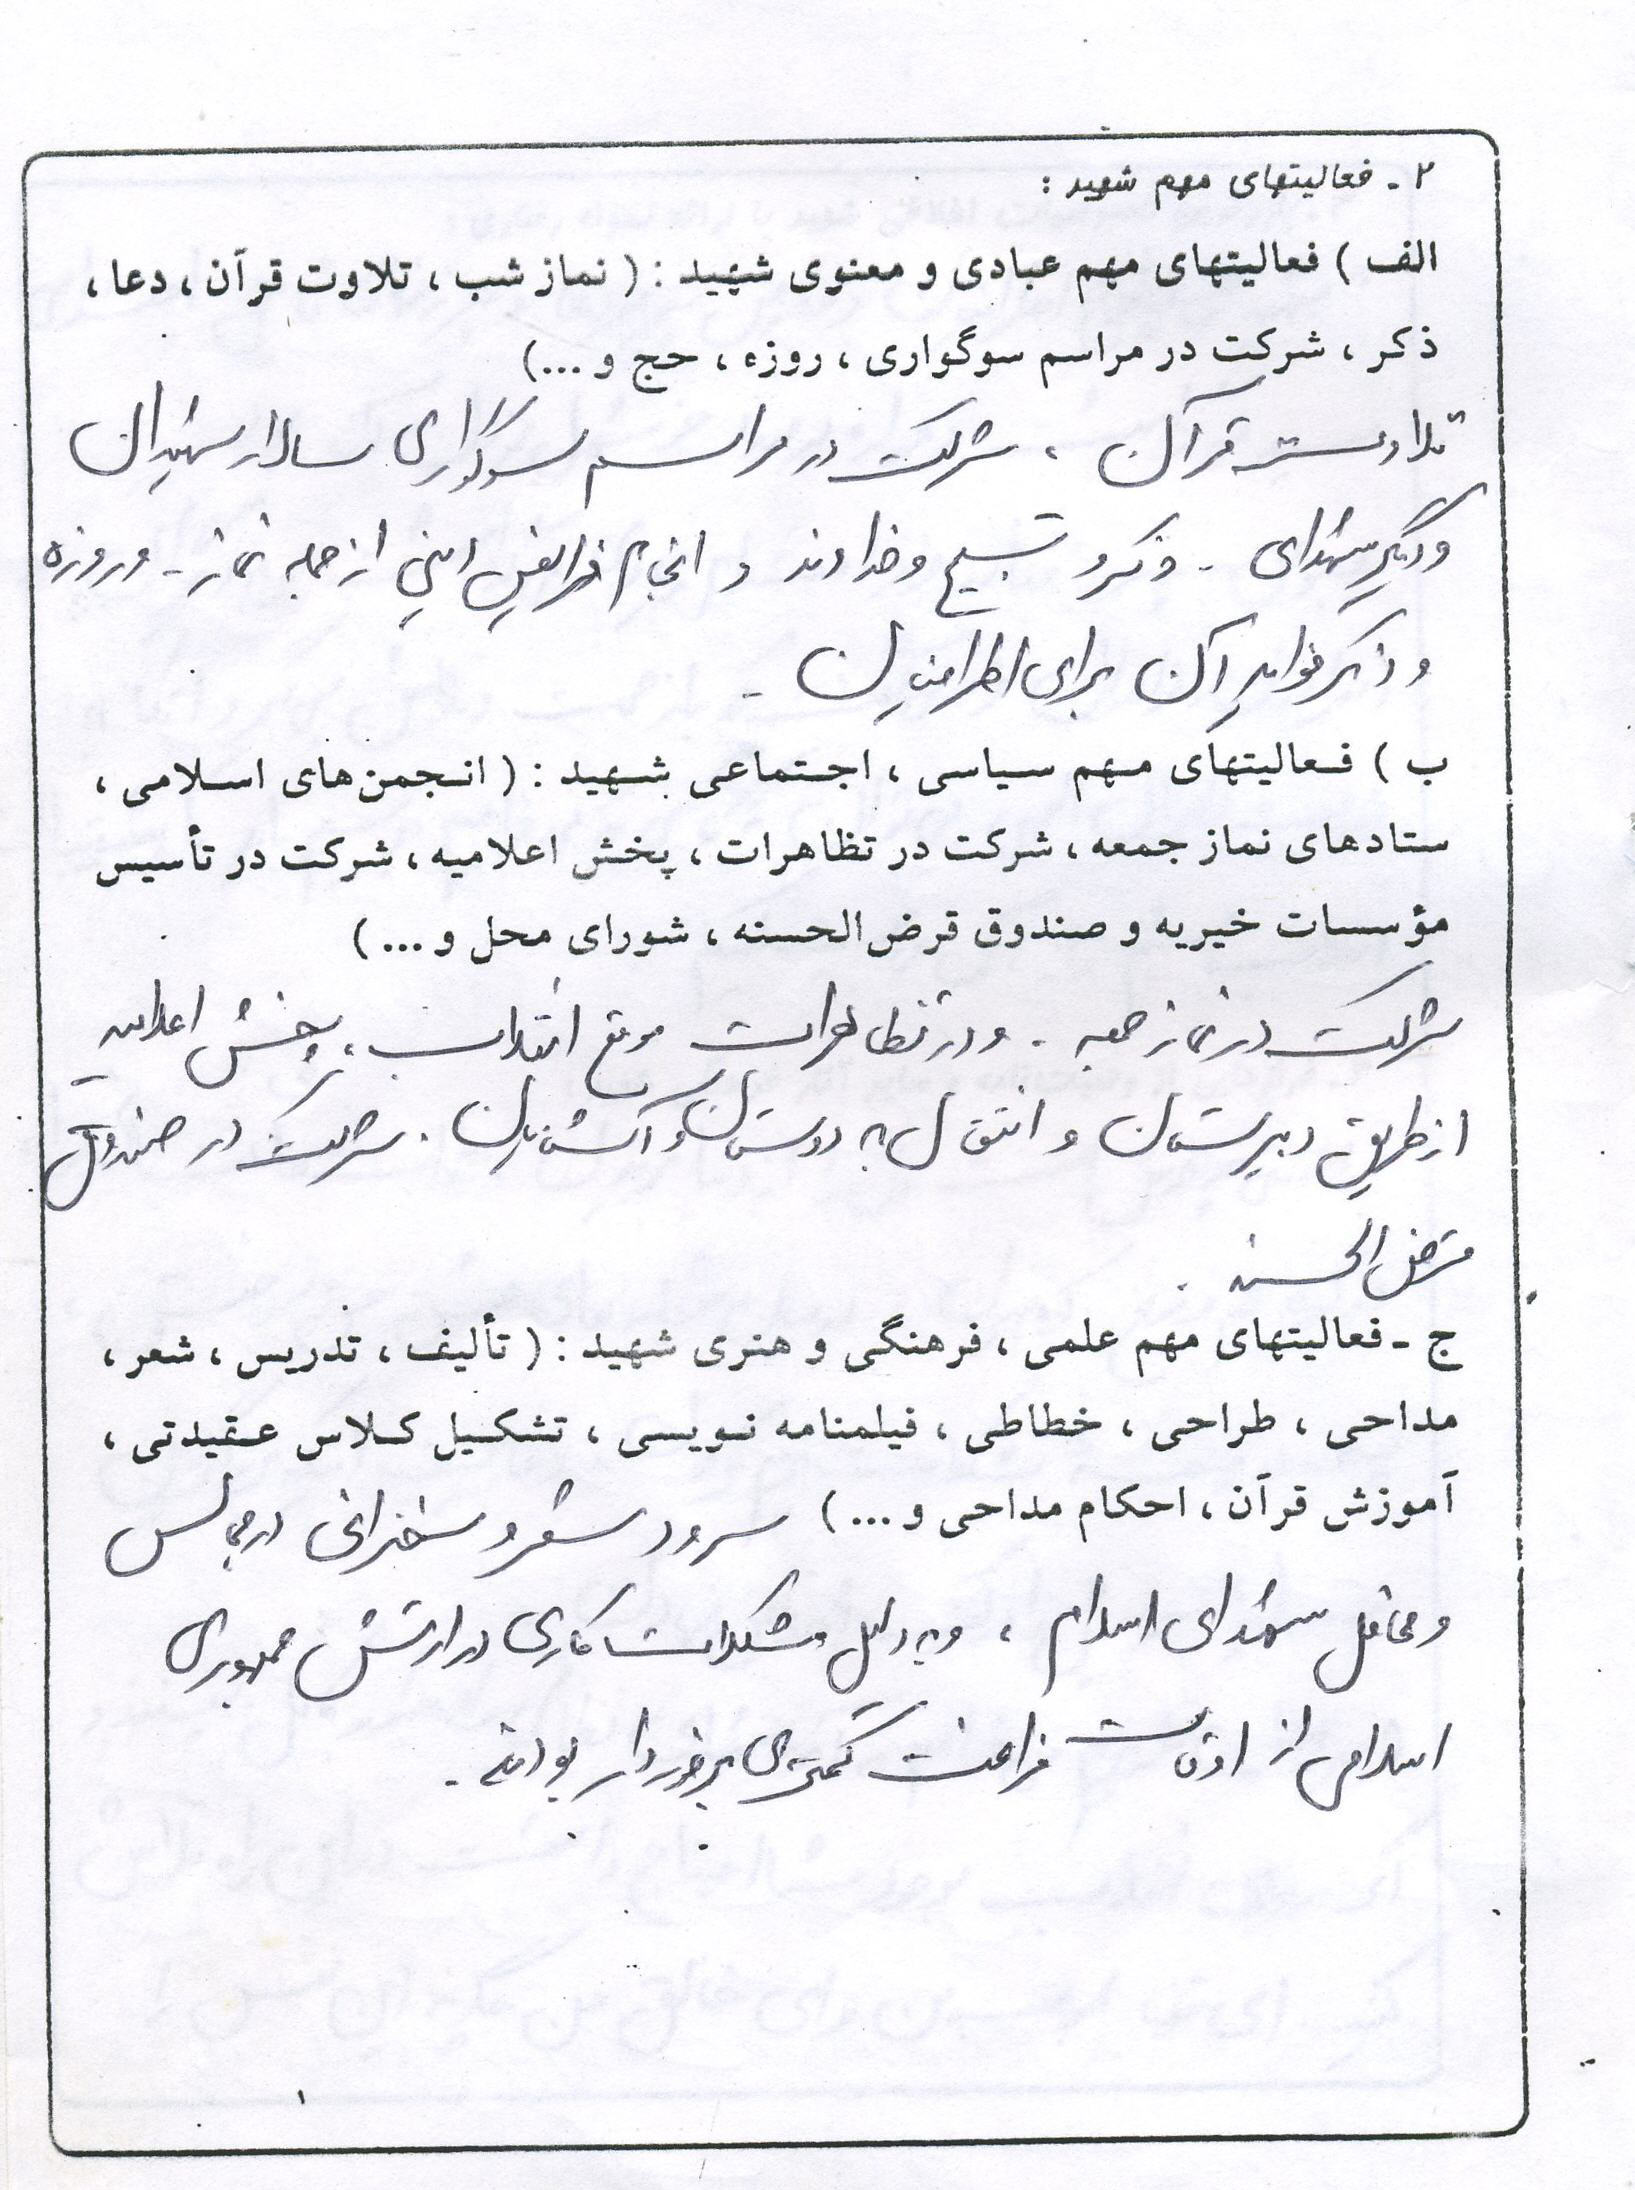 ۲ - فعالیتهای مهم شهید :
الف ) فعالیتهای مهم عبادی و معنوی شهید : ( نماز شب ، تلاوت قرآن ، دعا ،
ذکر ، شرکت در مراسم سوگواری ، روزه ، حج و ...)
تلاوت قرآن ، شرکت در مراسم سوگواری سالار شهیدان
و دیگر شهدای - ذکر و تسبیح خداوند و انجام فرایض دینی از جمله نماز - و روزه
و ذکر فواید آن برای اطرافیان -
ب ) فعالیتهای مهم سیاسی ، اجتماعی شهید : ( انجمن‌های اسلامی ،
ستادهای نماز جمعه ، شرکت در تظاهرات ، پخش اعلامیه ، شرکت در تأسیس
مؤسسات خیریه و صندوق قرض الحسنه ، شورای محل و ...)
شرکت در نماز جمعه - و در تظاهرات موقع انقلاب ، پخش اعلامیه
از طریق دبیرستان و انتقال به دوستان و آشنایان . شرکت در صندوق
قرض الحسنه .
ج - فعالیتهای مهم علمی ، فرهنگی و هنری شهید : ( تألیف ، تدریس ، شعر ،
مداحی ، طراحی ، خطاطی ، فیلمنامه نویسی ، تشکیل کلاس عقیدتی ،
آموزش قرآن ، احکام مداحی و ...) سرود شعر و سخنرانی در مجالس
و محافل شهدای اسلام ، و به دلیل مشکلات کاری در ارتش جمهوری
اسلامی از اوقات فراغت کمتری برخوردار بودند .